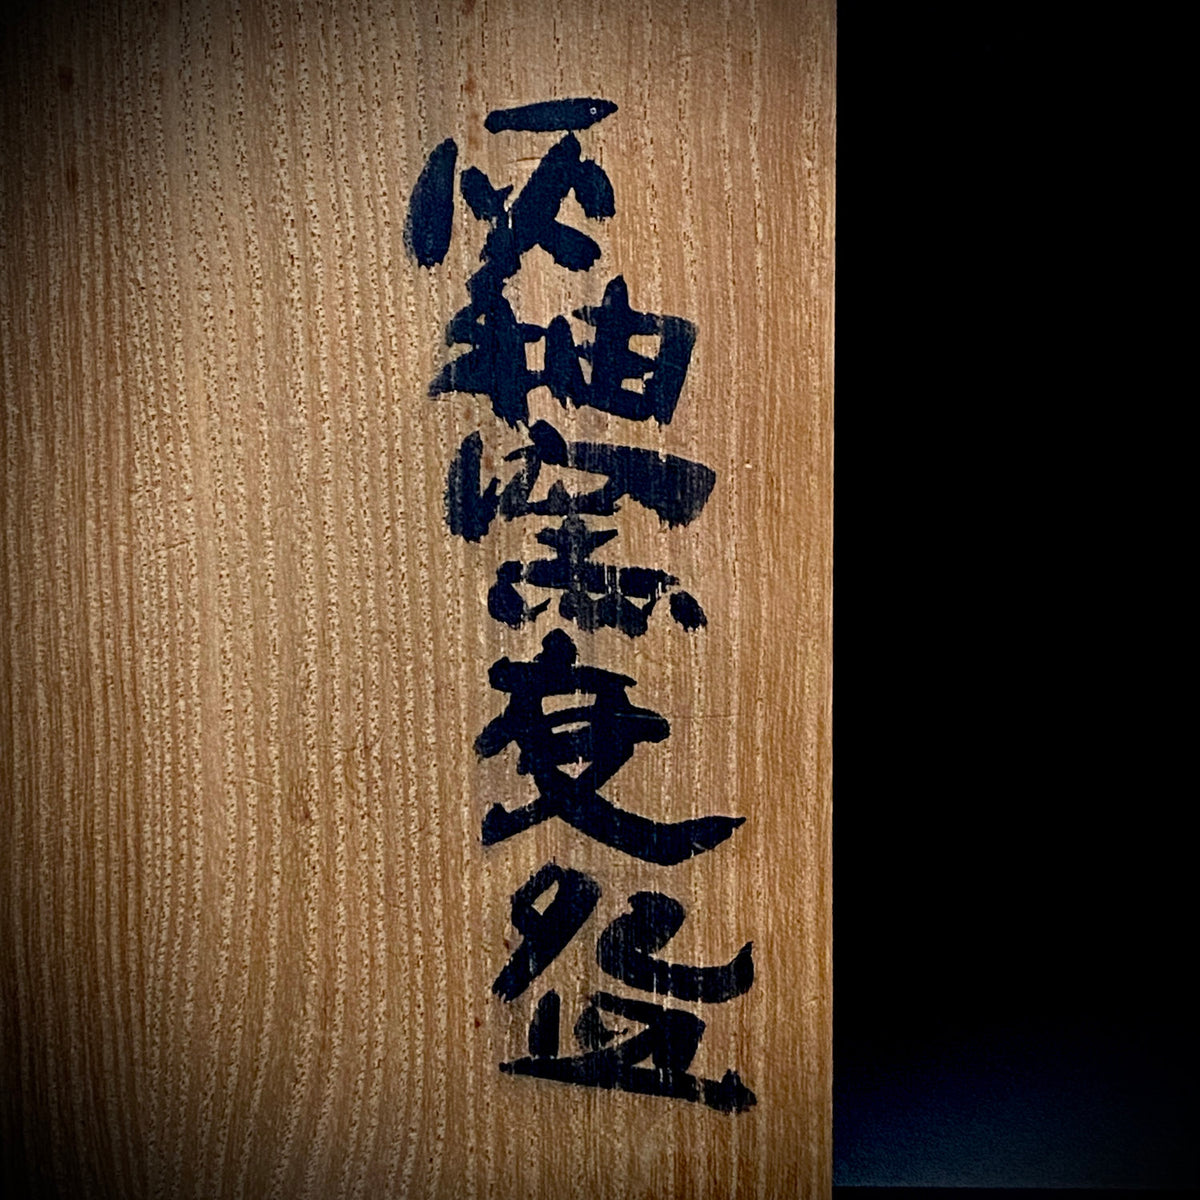 灰釉窯変盌